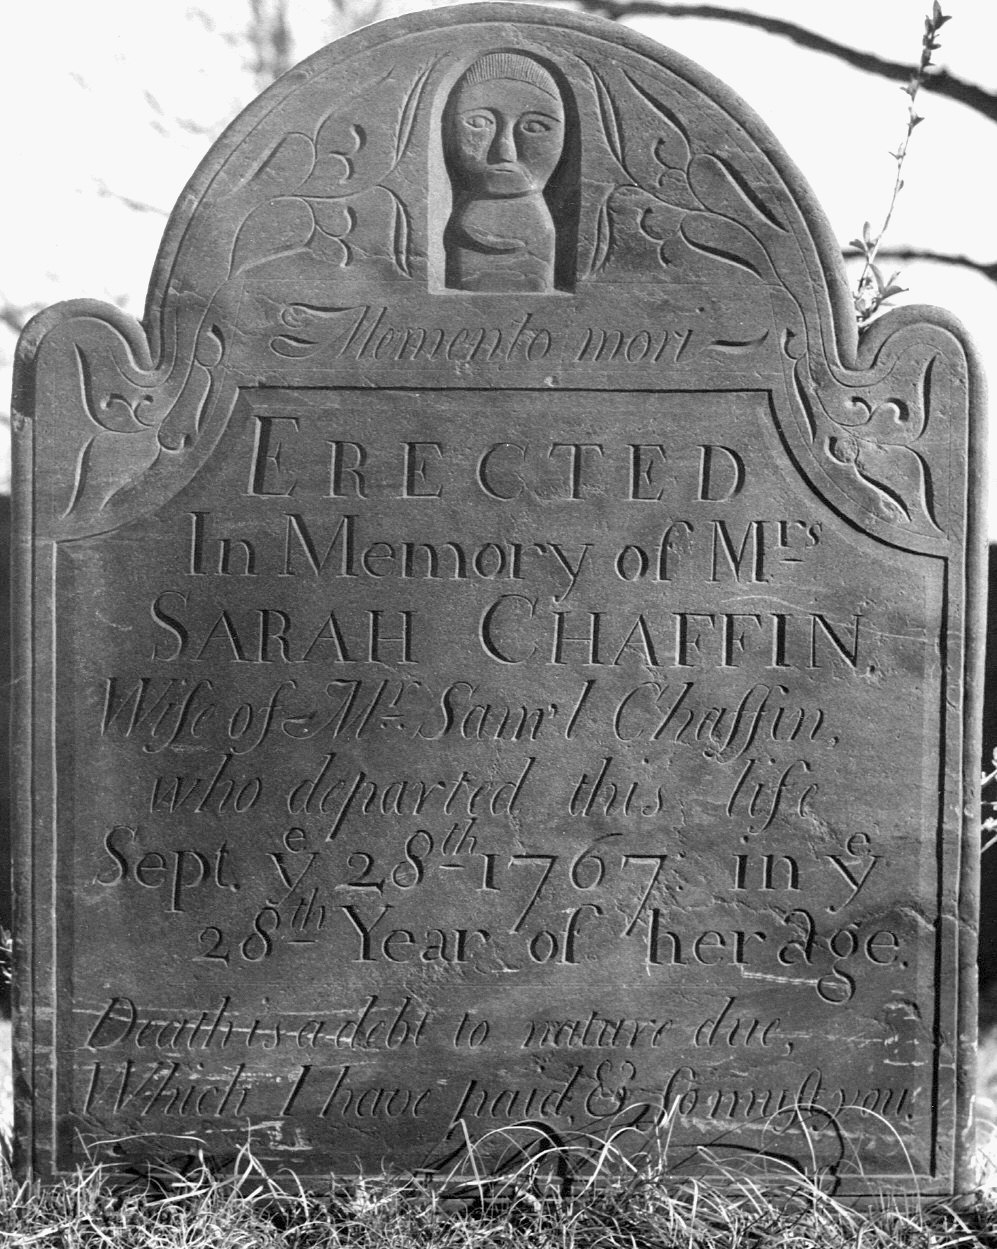 Memento mori
ERECTED
In Memory of Mrs
SARAH CHAFFIN.
Wife of Mr. Sam'l Chaffin,
who departed this life
Sept. ye 28th 1767. in ye
28th Year of her age.
Death is a debt to nature due,
Which I have paid, & so muſt you.